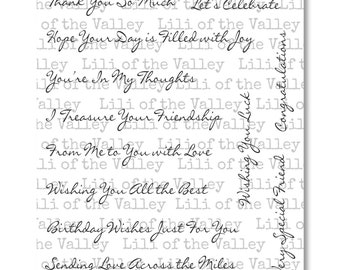 Thank You So Much
Let's Celebrate
Lili of the Valley
Hope Your Day is Filled with Joy
Lili of the Valley
You're In My Thoughts
Lili of the Valley
I Treasure Your Friendship
Lili of the Valley
From Me to You with Love
Lili of the Valley
Wishing You All the Best
Lili of the Valley
Birthday Wishes Just For You
Lili of the Valley
Sending Love Across the Miles
Wishing You Luck
Congratulations
Special Friend